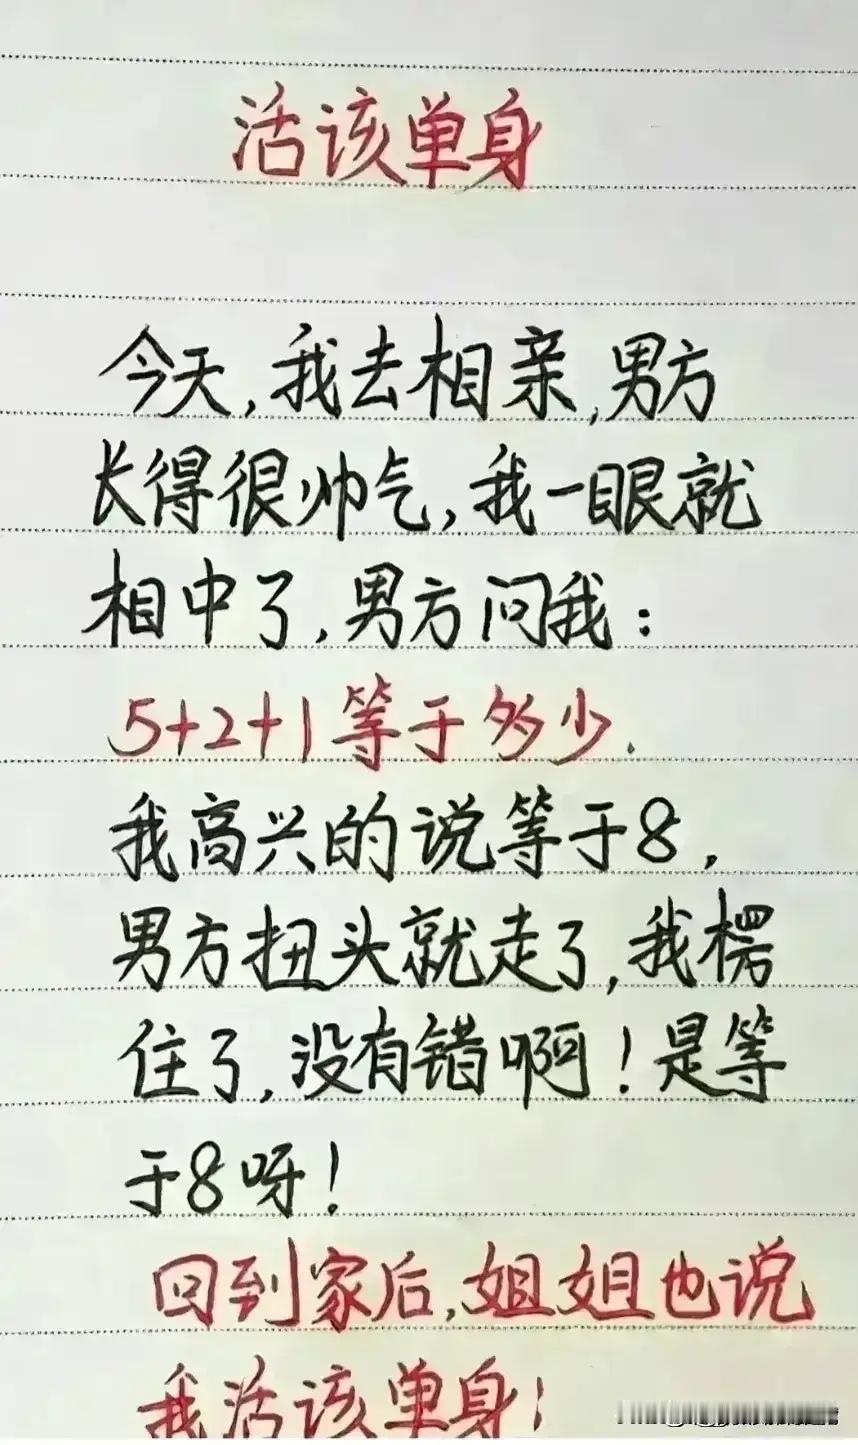 活该单身
今天,我去相亲,男方
长得很帅气,我一眼就
相中了,男方问我:
5+2+1等于多少.
我高兴的说等于8,
男方扭头就走了,我楞
住了,没有错啊!是等
于8呀!
回到家后,姐姐也说
我活该单身!